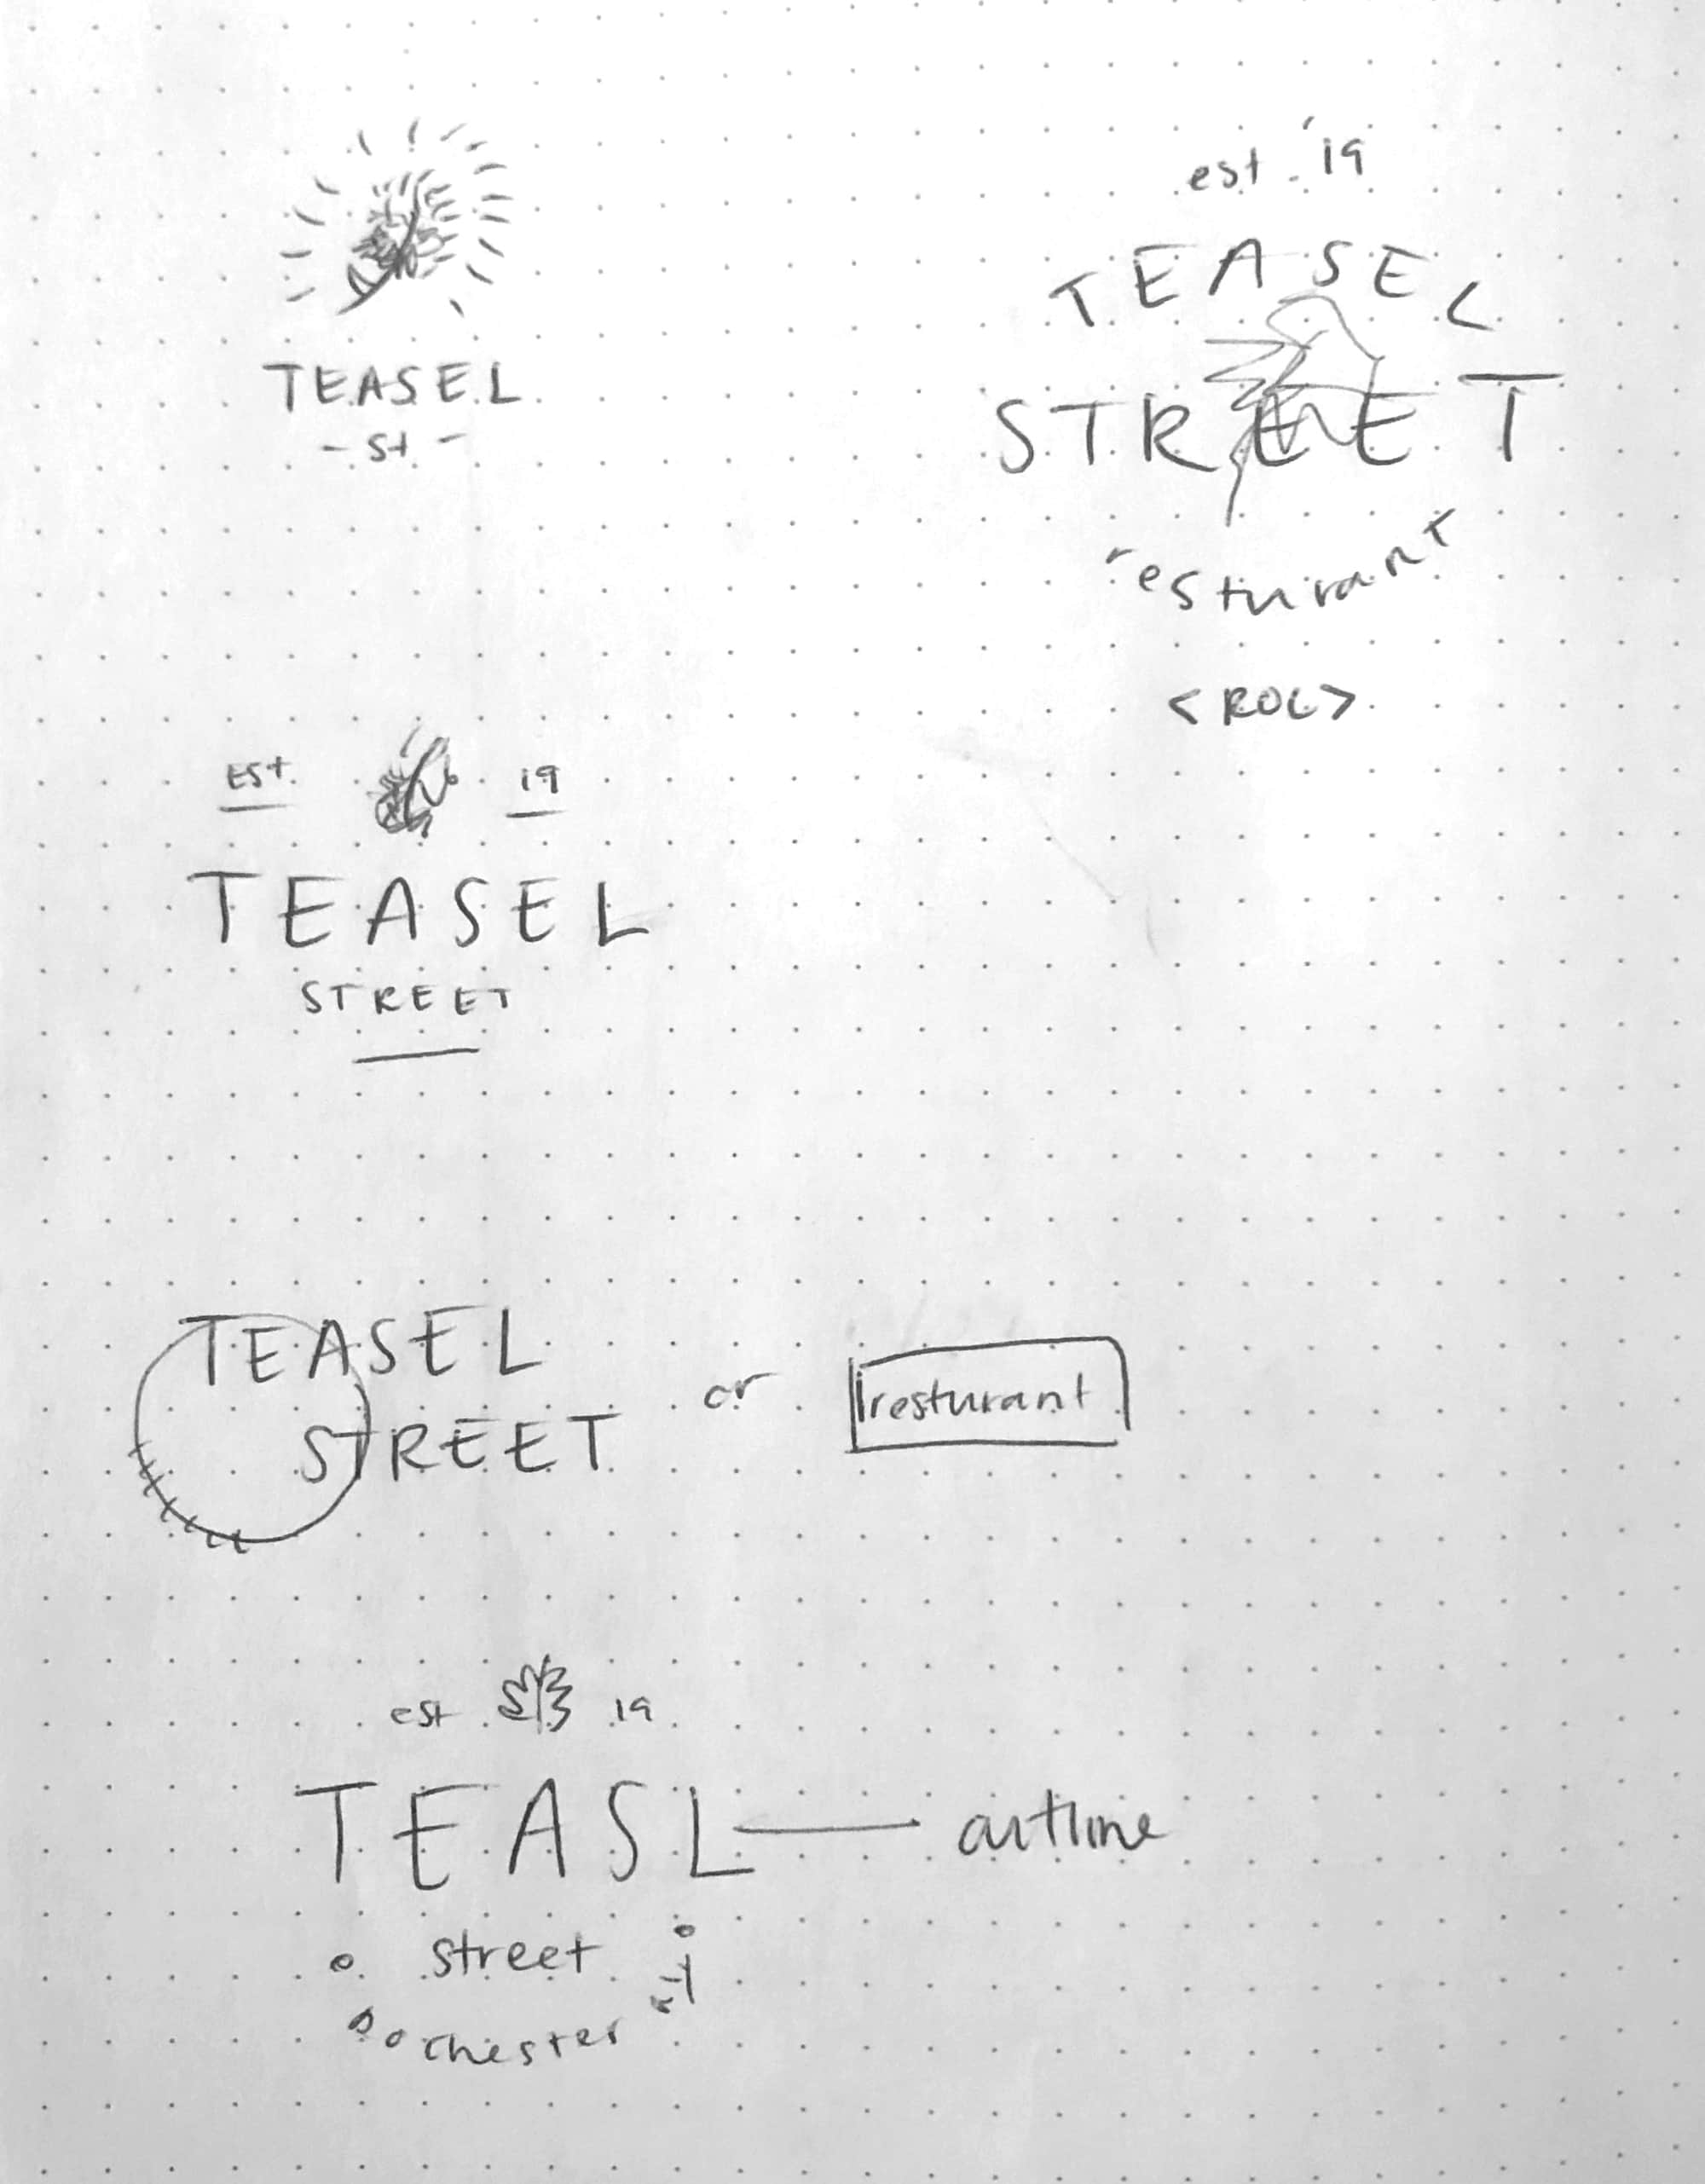 TEASEL
- St -
est. '19
TEASEL
STREET
resturant
<ROC>
Est. 19
TEASEL
STREET
TEASEL
STREET
or
resturant
est 19
TEASL
outline
street
Rochester NY